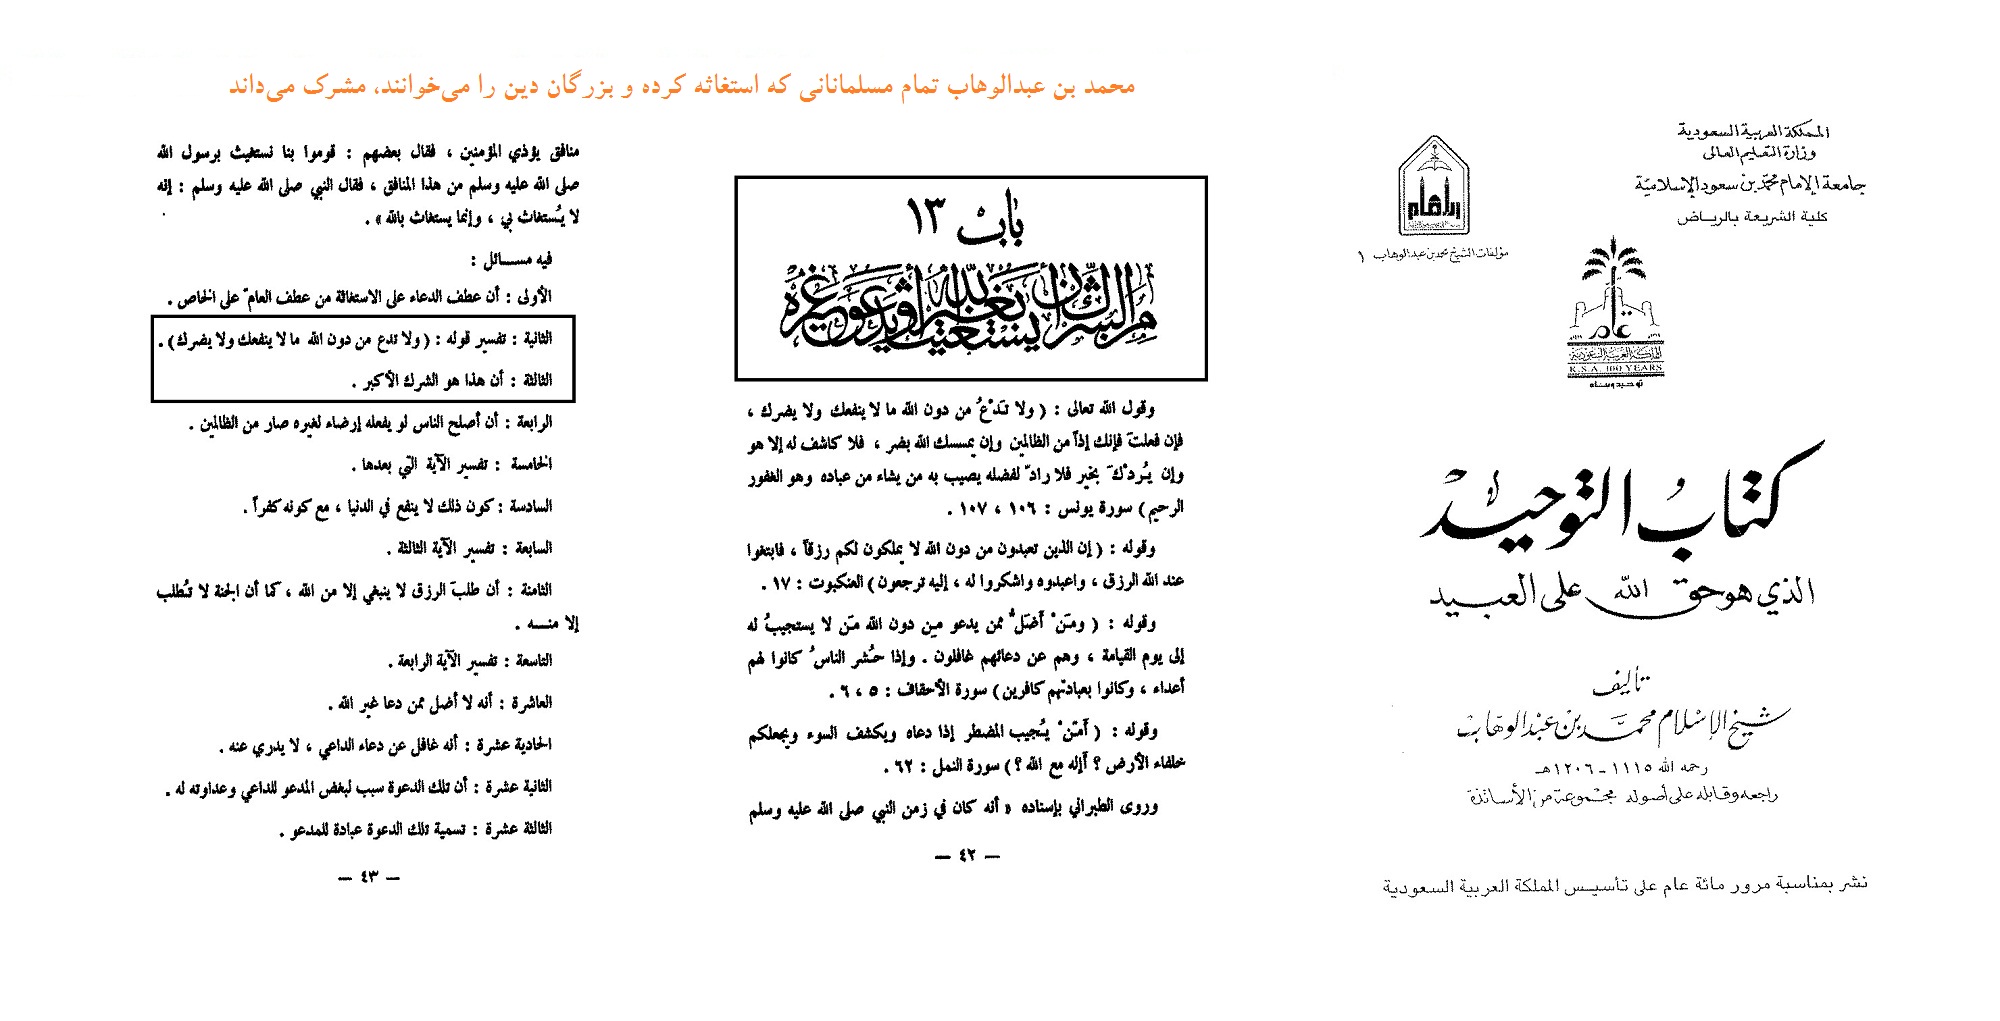 محمد بن عبدالوهاب تمام مسلمانانی که استغاثه کرده و بزرگان دین را می‌خوانند، مشرک می‌داند
المملكة العربية السعودية
وزارة التعليم العالى
جامعة الإمام محمد بن سعود الإسلامية
كلية الشريعة بالرياض
مؤلفات الشيخ محمد بن عبد الوهاب ١
المملكة العربية السعودية
K.S.A. 100 YEARS
توحيد وبناء
كتاب التوحيد
الذي هو حق الله على العبيد
تأليف
شيخ الإسلام محمد بن عبد الوهاب
رحمه الله ١١١٥ - ١٢٠٦هـ
راجعه وقابله على أصوله مجموعة من الأساتذة
نشر بمناسبة مرور مائة عام على تأسيس المملكة العربية السعودية
باب ١٣
من الشرك أن يستغيث بغير الله أو يدعو غيره
وقول الله تعالى : ( ولا تَدْعُ من دون الله ما لا ينفعك ولا يضرك ،
فإن فعلتَ فإنك إذاً من الظالمين وإن يمسسك الله بضر ، فلا كاشف له إلا هو
وإن يُردْكَ بخير فلا رادّ لفضله يصيب به من يشاء من عباده وهو الغفور
الرحيم ) سورة يونس : ١٠٦ ، ١٠٧ .
وقوله : ( إن الذين تعبدون من دون الله لا يملكون لكم رزقاً ، فابتغوا
عند الله الرزق ، واعبدوه واشكروا له ، إليه ترجعون ) العنكبوت : ١٧ .
وقوله : ( ومَنْ أضلُّ ممن يدعو مِن دون الله مَن لا يستجيبُ له
إلى يوم القيامة ، وهم عن دعائهم غافلون . وإذا حُشر الناسُ كانوا لهم
أعداء ، وكانوا بعبادتهم كافرين ) سورة الأحقاف : ٥ ، ٦ .
وقوله : ( أمّنْ يُجيب المضطر إذا دعاه ويكشف السوء ويجعلكم
خلفاء الأرض ؟ أإله مع الله ؟ ) سورة النمل : ٦٢ .
وروى الطبراني بإسناده « أنه كان في زمن النبي صلى الله عليه وسلم
— ٤٢ —
منافق يؤذي المؤمنين ، فقال بعضهم : قوموا بنا نستغيث برسول الله
صلى الله عليه وسلم من هذا المنافق ، فقال النبي صلى الله عليه وسلم : إنه
لا يُستغاث بي ، وإنما يستغاث بالله » .
فيه مســائل :
الأولى : أن عطف الدعاء على الاستغاثة من عطف العامّ على الخاص .
الثانية : تفسير قوله : ( ولا تدع من دون الله ما لا ينفعك ولا يضرك ) .
الثالثة : أن هذا هو الشرك الأكبر .
الرابعة : أن أصلح الناس لو يفعله إرضاء لغيره صار من الظالمين .
الخامسة : تفسير الآية التي بعدها .
السادسة : كون ذلك لا ينفع في الدنيا ، مع كونه كفراً .
السابعة : تفسير الآية الثالثة .
الثامنة : أن طلبَ الرزق لا ينبغي إلا من الله ، كما أن الجنة لا تُطلب
إلا منــه .
التاسعة : تفسير الآية الرابعة .
العاشرة : أنه لا أضل ممن دعا غير الله .
الحادية عشرة : أنه غافل عن دعاء الداعي ، لا يدري عنه .
الثانية عشرة : أن تلك الدعوة سبب لبغض المدعو للداعي وعداوته له .
الثالثة عشرة : تسمية تلك الدعوة عبادة للمدعو .
— ٤٣ —